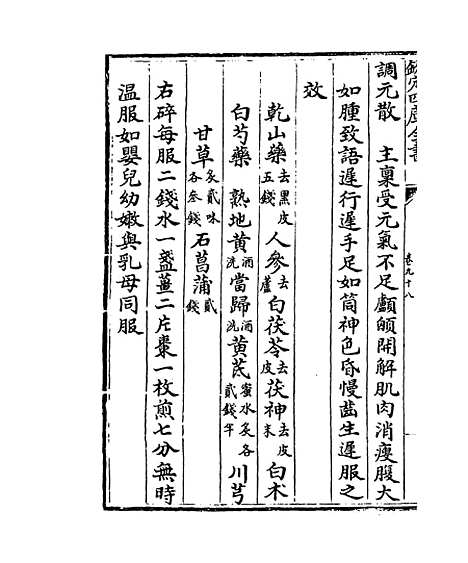 欽定四庫全書
卷九十八
調元散　主稟受元氣不足顱頠開解肌肉消瘦腹大
如腫致語遲行遲手足如筒神色昏慢齒生遲服之
效
乾山藥去黑皮五錢人參去蘆白茯苓去皮茯神去皮木白术
白芍藥　熟地黃酒洗當歸酒洗黃芪蜜水炙各貳錢半川芎
甘草炙貳味各叁錢石菖蒲貳錢
右碎每服二錢水一盞薑二片棗一枚煎七分無時
温服如嬰兒幼嫩與乳母同服